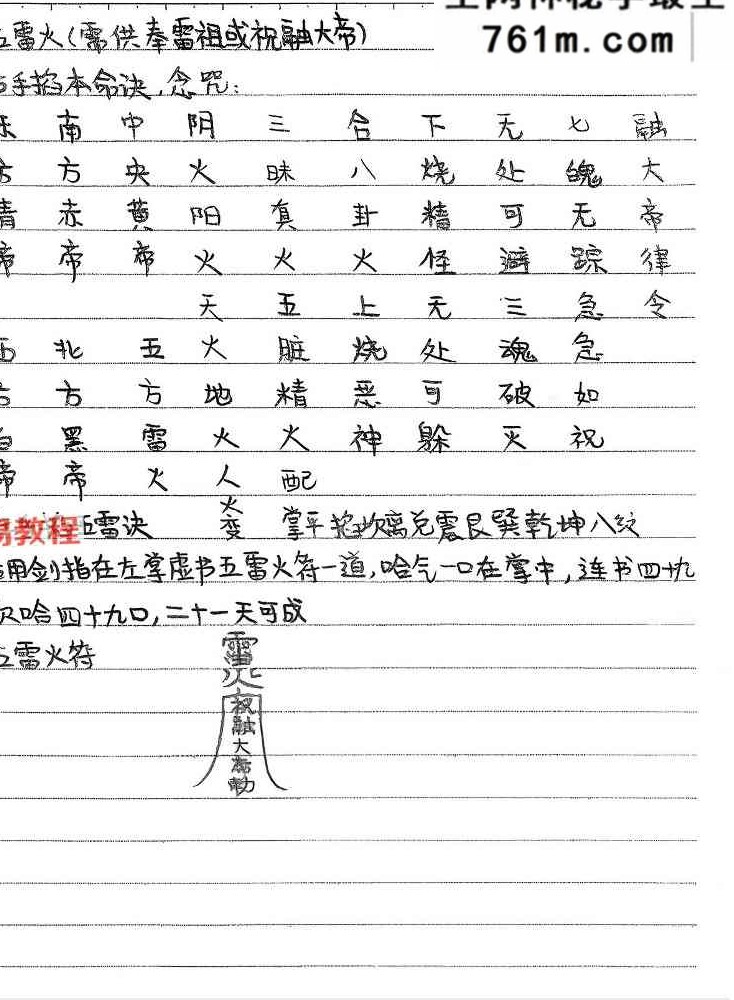 761m.com
五雷火(需供奉雷祖或祝融大帝)
手掐本命诀,念咒:
东方青帝西方白帝
南方赤帝北方黑帝
中央黄帝五方雷火
阴火阳火天火地火人火变
三昧真火五脏精火配
合八卦火上烧恶神
下烧精怪无处可躲
无处可避三魂破灭
七魄无踪急急如祝
融大帝律令
易教程
五雷诀 掌平掐坎离兑震艮巽乾坤八纹
用剑指在左掌虚书五雷火符一道,哈气一口在掌中,连书四十九
次哈四十九口,二十一天可成
五雷火符
雷火
祝融大帝